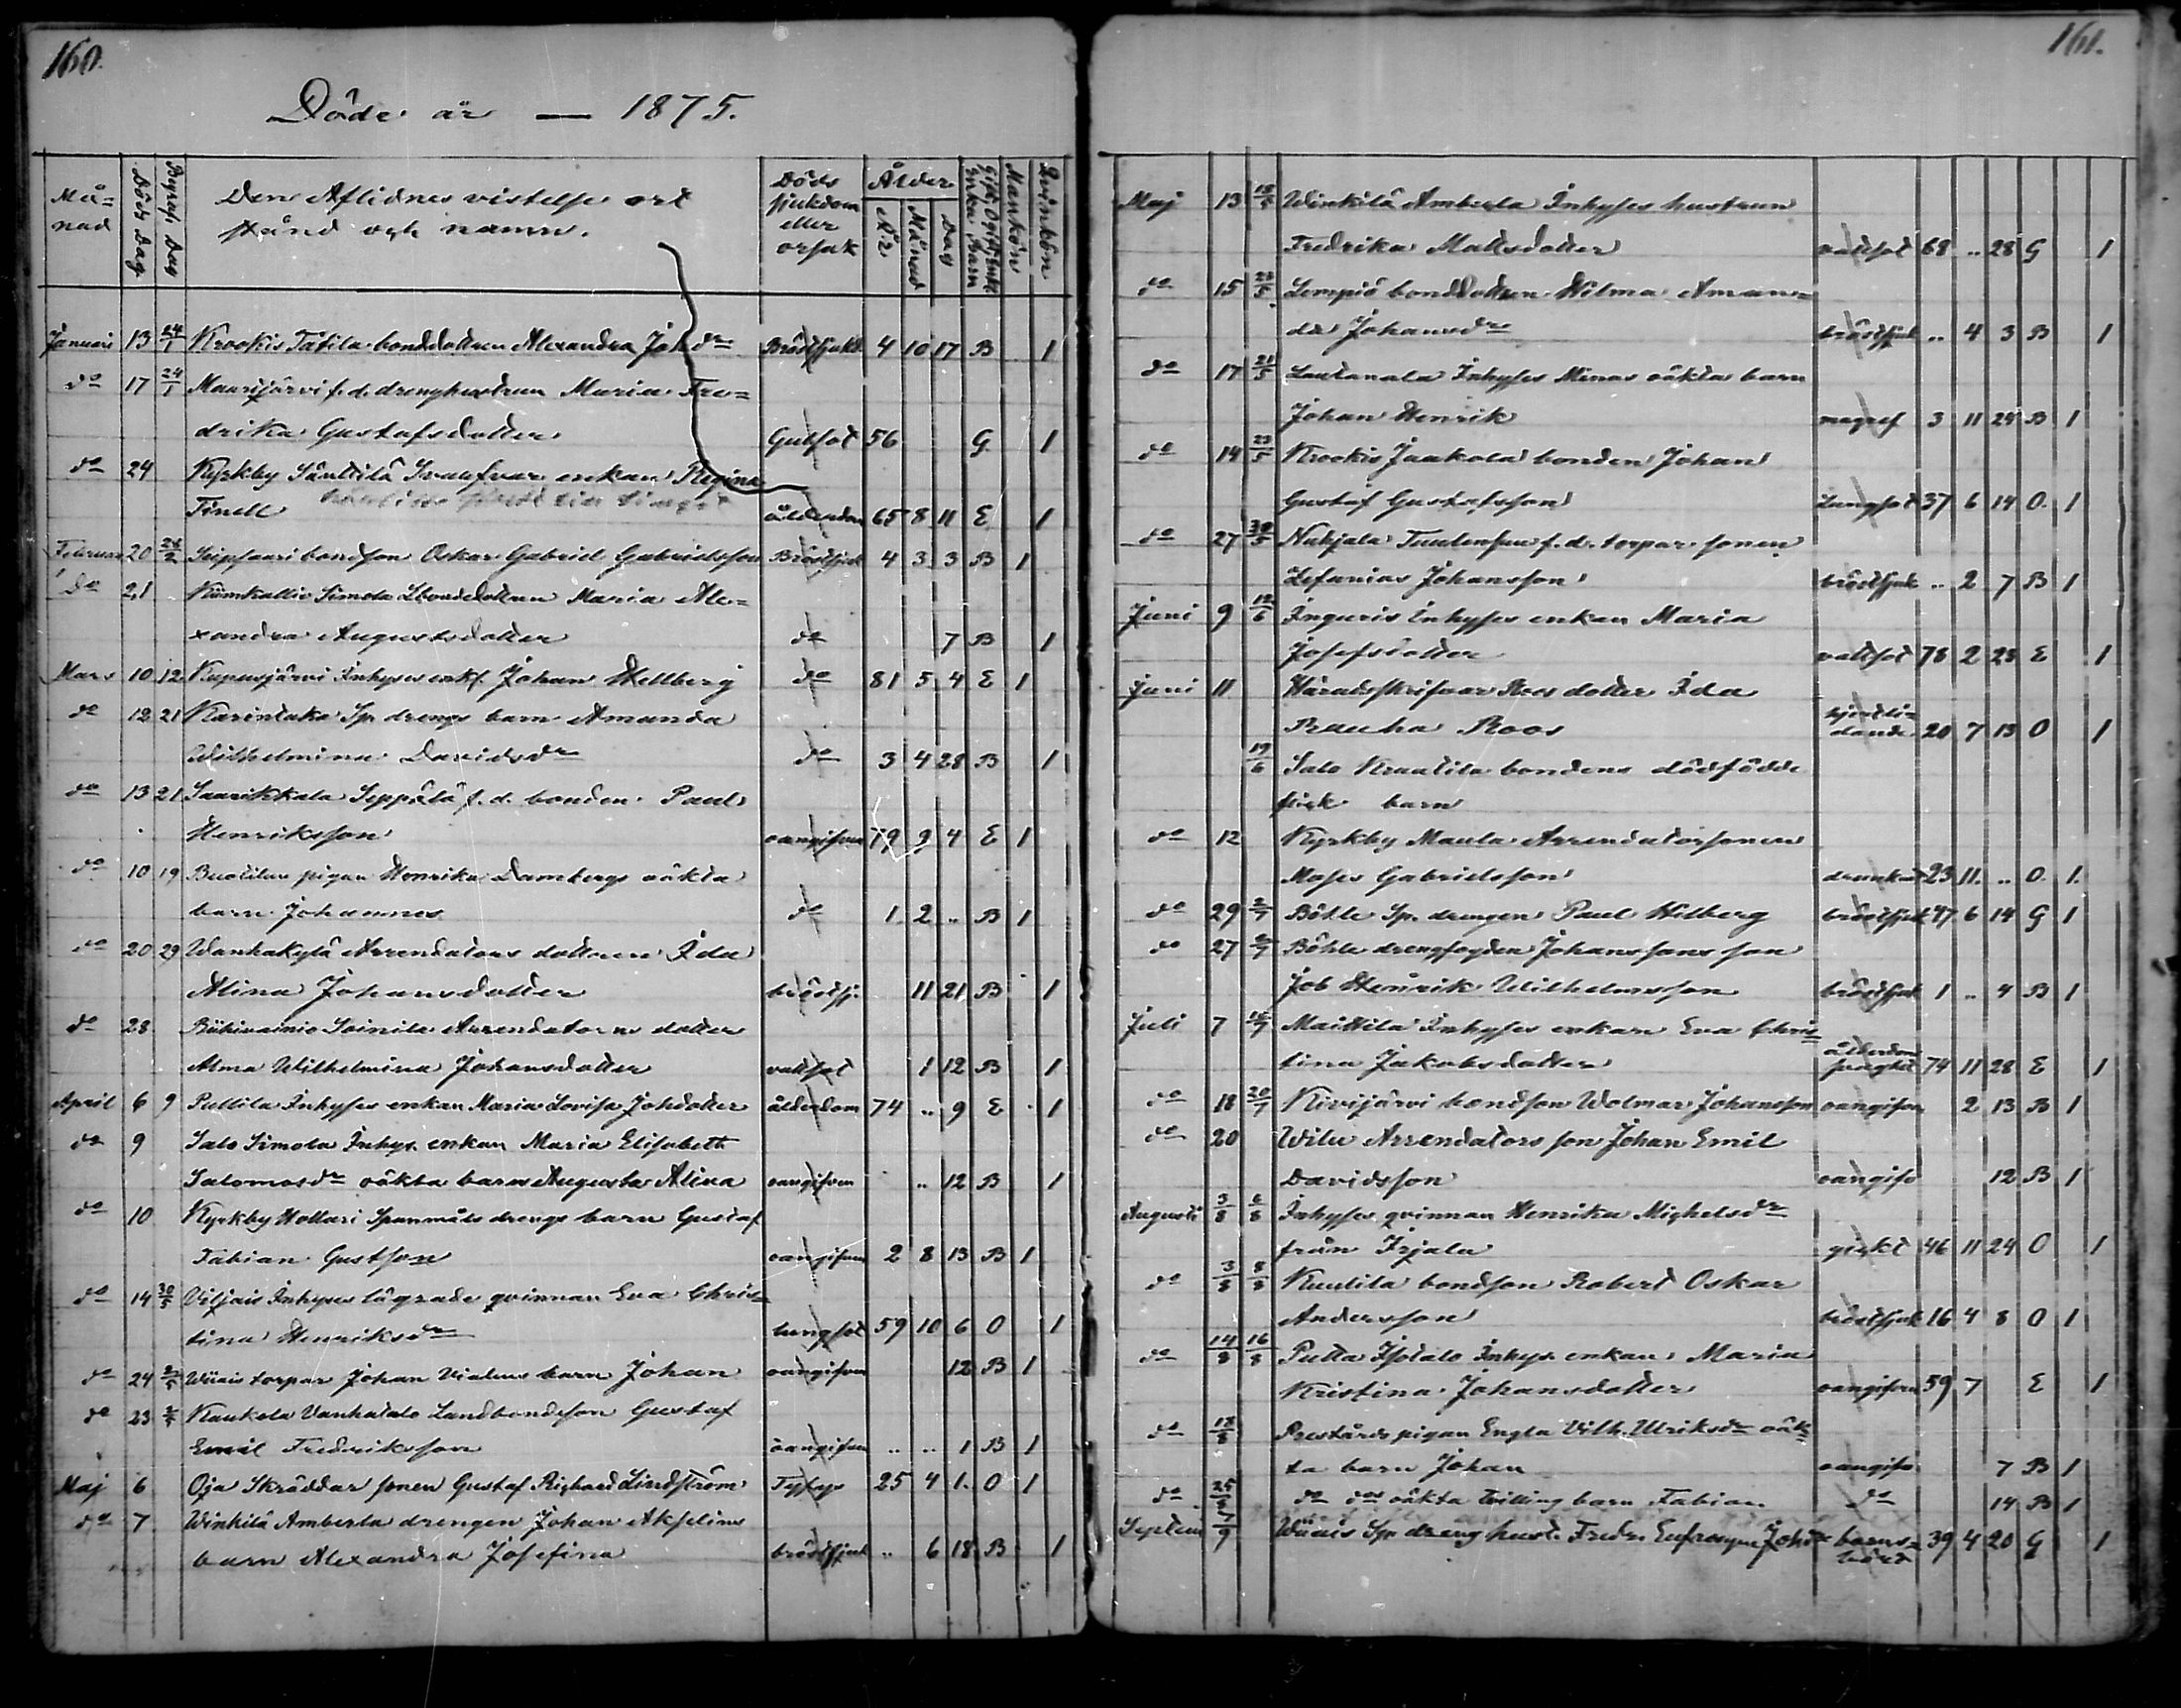 160.
Döde år — 1875.
Må=
nad
Döds Dag
Begraf. Dag
Den Aflidnes vistelse ort
stånd och namn.
Döds
sjukdom
eller
orsak
Ålder
År
Månad
Dag
Mankön
Qvinkön
Januari 13 24/1 Krookis Tätilä bonddottren Alexandra Joh dr Bröstsjukd. 4 10 17 B 1
do 17 24/1 Maurijärvi f. d. dreng hustrun Maria Fre=
drika Gustafsdotter Gulsot 56 G. 1
do 24 Kyrkby Säntilä enkan Regina
Tinell ålderdom 65 8 11 E 1
Februari 20 28/2 Seipsaari bondson Oskar Gabriel Gabrielsson Bröstsjuk 4 3 3 B 1
do 21 Kiimkallio Simola Lbondedottren Maria Ale=
xandra Augustsdotter do 7 B 1
Mars 10 12 Kupusjärvi Inhyses enkl. Johan Hellberg do 81 5 4 E 1
do 12 21 Karintaka Sp. drengs barn Amanda
Wilhelmina Davidsdr do 3 4 28 B 1
do 13 21 Saarikkala Seppälä f. d. bonden Paul
Henriksson oangifven 79 9 4 E 1
do 10 19 pigan Henrika Dambergs oäkta
barn Johannes do 1 2 .. B 1
do 20 29 Wanhakylä Arrendators dottren Ida
Alina Johansdotter bröstsj. 11 21 B 1
do 28 Riihivainio Soinila Arrendatorns dotter
Alma Wilhelmina Johansdotter vattsot 1 12 B 1
April 6 9 Puttila Inhyses enkan Maria Lovisa Johdotter ålderdom 74 .. 9 E 1
do 9 Salo Simola Inhys. enkan Maria Elisabeth
Salomosdr oäkta barn Augusta Alina oangifven .. 12 B 1
do 10 Kyrkby Hollari Spanmåls drengs barn Gustaf
Fabian Gustsson oangifven 2 8 13 B 1
do 14 30/5 Viljais Inhyses lägrade qvinnan Eva Chris=
tina Henriksdr lungsot 59 10 6 O 1
do 24 2/5 Wiiais torpar Johan Vialens barn Johan oangifven 12 B 1
do 23 Kaukola Vanhatalo Landbondeson Gustaf
Emil Fredriksson oangifven .. .. 1 B 1
Maj 6 Oja Skräddar sonen Gustaf Richard Lindström Tyfys 25 4 1. O 1
do 7 Winkilä Amberla drengen Johan Akselins
barn Alexandra Josefina bröstsjuk .. 6 18 B 1
161.
Maj 13 18/5 Winkilä Amberla Inhyses hustrun
Fredrika Mattsdotter vattsot 68 .. 28 G 1
do 15 23/5 Lempiö bonddottren Wilma Aman=
da Johansdr bröstsjuk .. 4 3 B 1
do 17 21/5 Lautanala Inhyses Minas oäkta barn
Johan Henrik magref 3 11 24 B 1
do 14 23/5 Krookis Jaakola bonden Johan
Gustaf Gustafsson Lungsot 37 6 14 O. 1
do 27 30/5 Nuhjala f. d. torpar sonen
Zefanias Johansson bröstsjuk .. 2 7 B 1
Juni 9 12/6 Inguris Inhyses enkan Maria
Josefsdotter vattsot 78 2 23 E 1
Juni 11 Häradsskrifvar Roos dotter Ida
Rauha Roos hjertli=
dande 20 7 13 O 1
19/6 Salo Kraatila bondens dödfödde
fick barn
do 12 Kyrkby Maula Arrendatorsonen
Moses Gabrielsson drunknat 23 11. .. O. 1.
do 29 2/7 Böhle Sp. drengen Paul Hilberg bröstsjuk 47 6 14 G 1
do 27 Böhle drengfogden Johanssons son
Job Henrik Wilhelmsson bröstsjuk 1 .. 4 B 1
Juli 7 Maittila Inhyses enkan Eva Chris=
tina Jakobsdotter ålderdom
svaghet 74 11 28 E 1
do 18 20/7 Kivijärvi bondson Wolmar Johansson oangifven 2 13 B 1
do 20 Wilu Arrendators son Johan Emil
Davidsson oangifv 12 B 1
Augusti 3/8 6/8 Inhyses qvinnan Henrika Michelsdr
från Irjala gickt 46 11 24 O 1
do 3/8 8/8 Kuutila bondson Robert Oskar
Andersson bröstsjuk 16 4 8 O 1
do 14/8 16/8 Putta Isotalo Inhys. enkan Maria
Kristina Johansdotter oangifven 59 7 E 1
do 18/8 Prestgårds pigan Engla Vilh. Ulriksdr oäk=
ta barn Johan oangifv. 7 B 1
do 25/8 do dos oäkta tvilling barn Fabian do 14 B 1
Septem 5/9 Wiiais Sp. dreng hust. Fredr. Eufrosyne Johdr barns=
börd 39 4 20 G 1